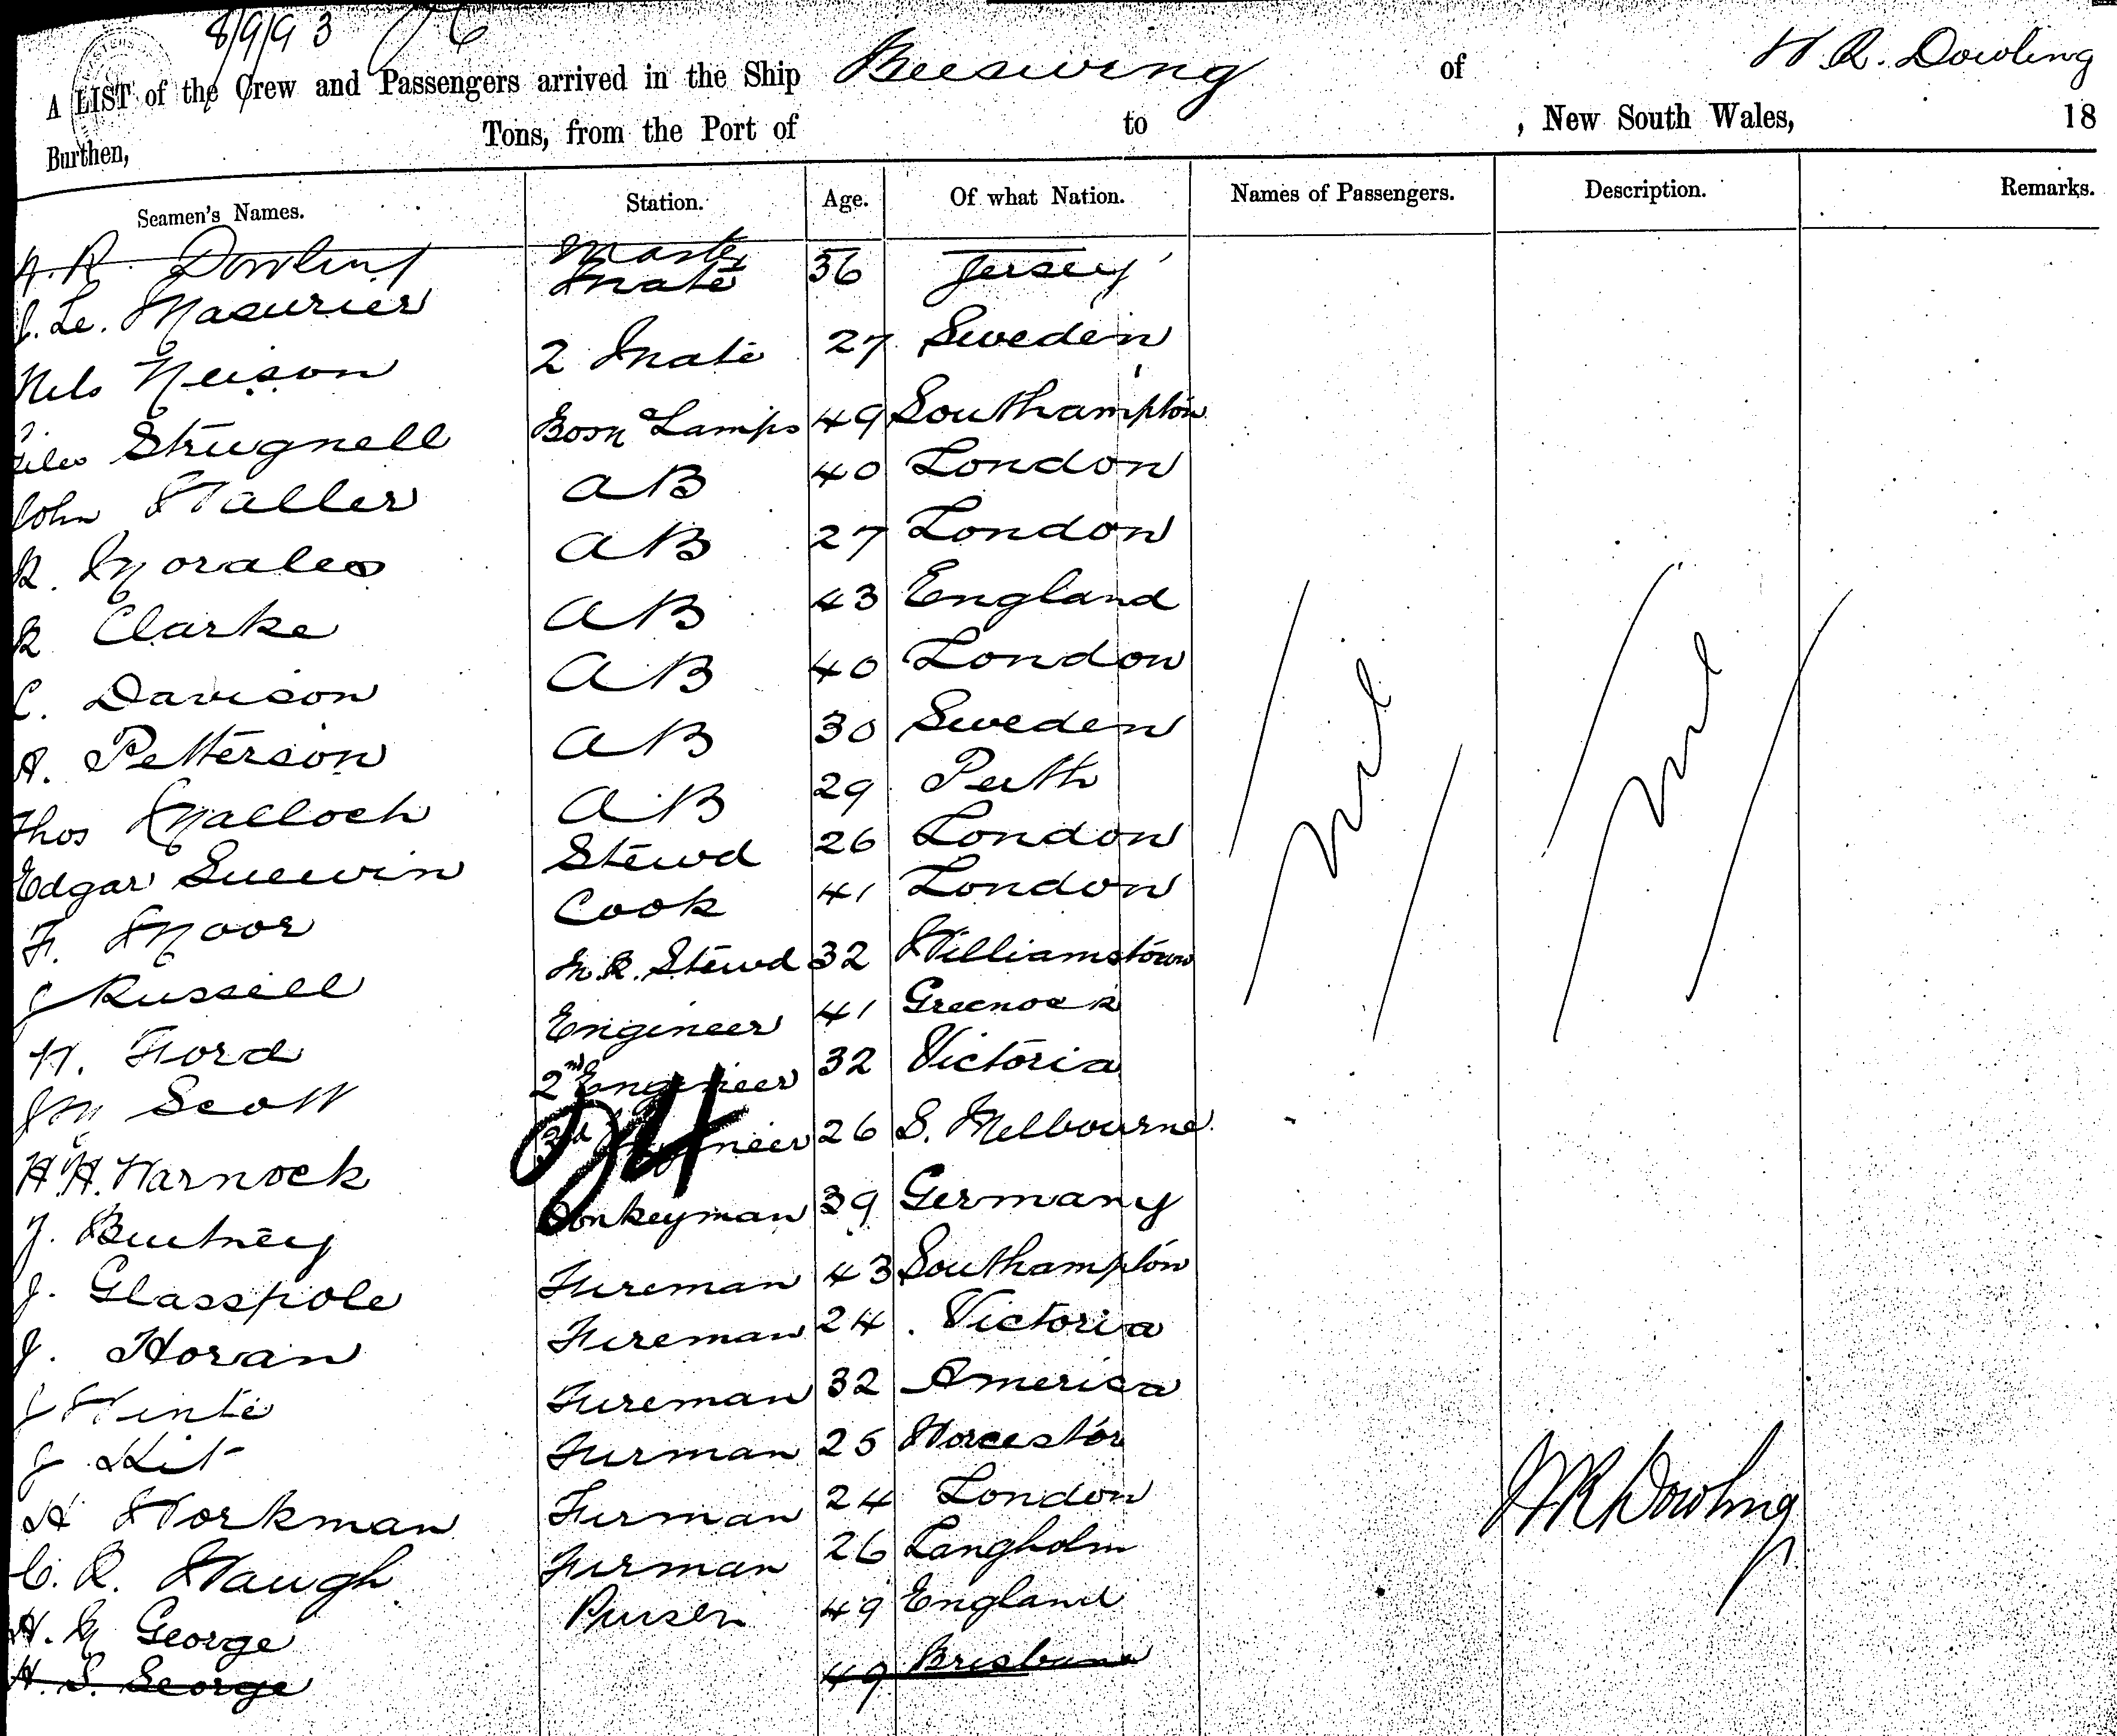 8/9/93
A LIST of the Crew and Passengers arrived in the Ship Beeswing of W. R. Dowling
Burthen, Tons, from the Port of to , New South Wales, 18
Seamen's Names. Station. Age. Of what Nation. Names of Passengers. Description. Remarks.
W. R. Dowling Master
J. Le. Masurier Mate 36 Jersey
Nels Neison 2 Mate 27 Sweden
Giles Strugnell Bosn Lamps 49 Southampton
John Waller AB 40 London
R. Morales AB 27 London
R Clarke AB 43 England
C. Davison AB 40 London
A. Petterson AB 30 Sweden
Thos Malloch AB 29 Perth
Edgar Stewd 26 London
F. Moor Cook 41 London
J Russell M.R. Stewd 32 Williamstown
W. Ford Engineer 41 Greenock
J M Scott 2nd Engineer 32 Victoria
H. H. Warnock 3rd Engineer 26 S. Melbourne
24
J. Donkeyman 39 Germany
J. Glasspole Fireman 43 Southampton
J. Horan Fireman 24 Victoria
J Fireman 32 America
J Firman 25 Worcester
H Workman Firman 24 London
C. R. Waugh Firman 26 Langholm
H. M George Purser 49 England
H. S. George 49 Brisbane
Nil
Nil
W R Dowling